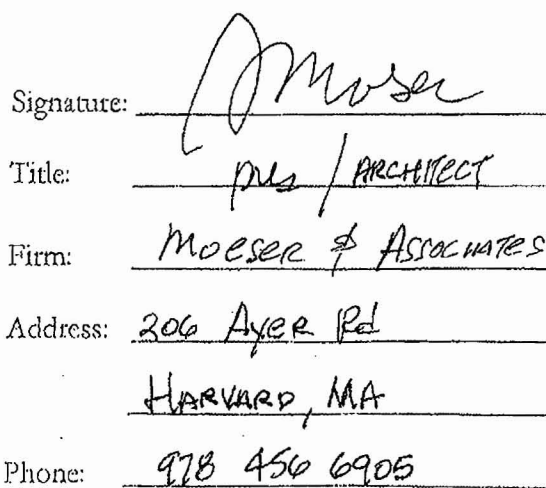 Signature: Moser
Title: pres / ARCHITECT
Firm: Moeser & Associates
Address: 206 Ayer Rd
HARVARD, MA
Phone: 978 456 6905